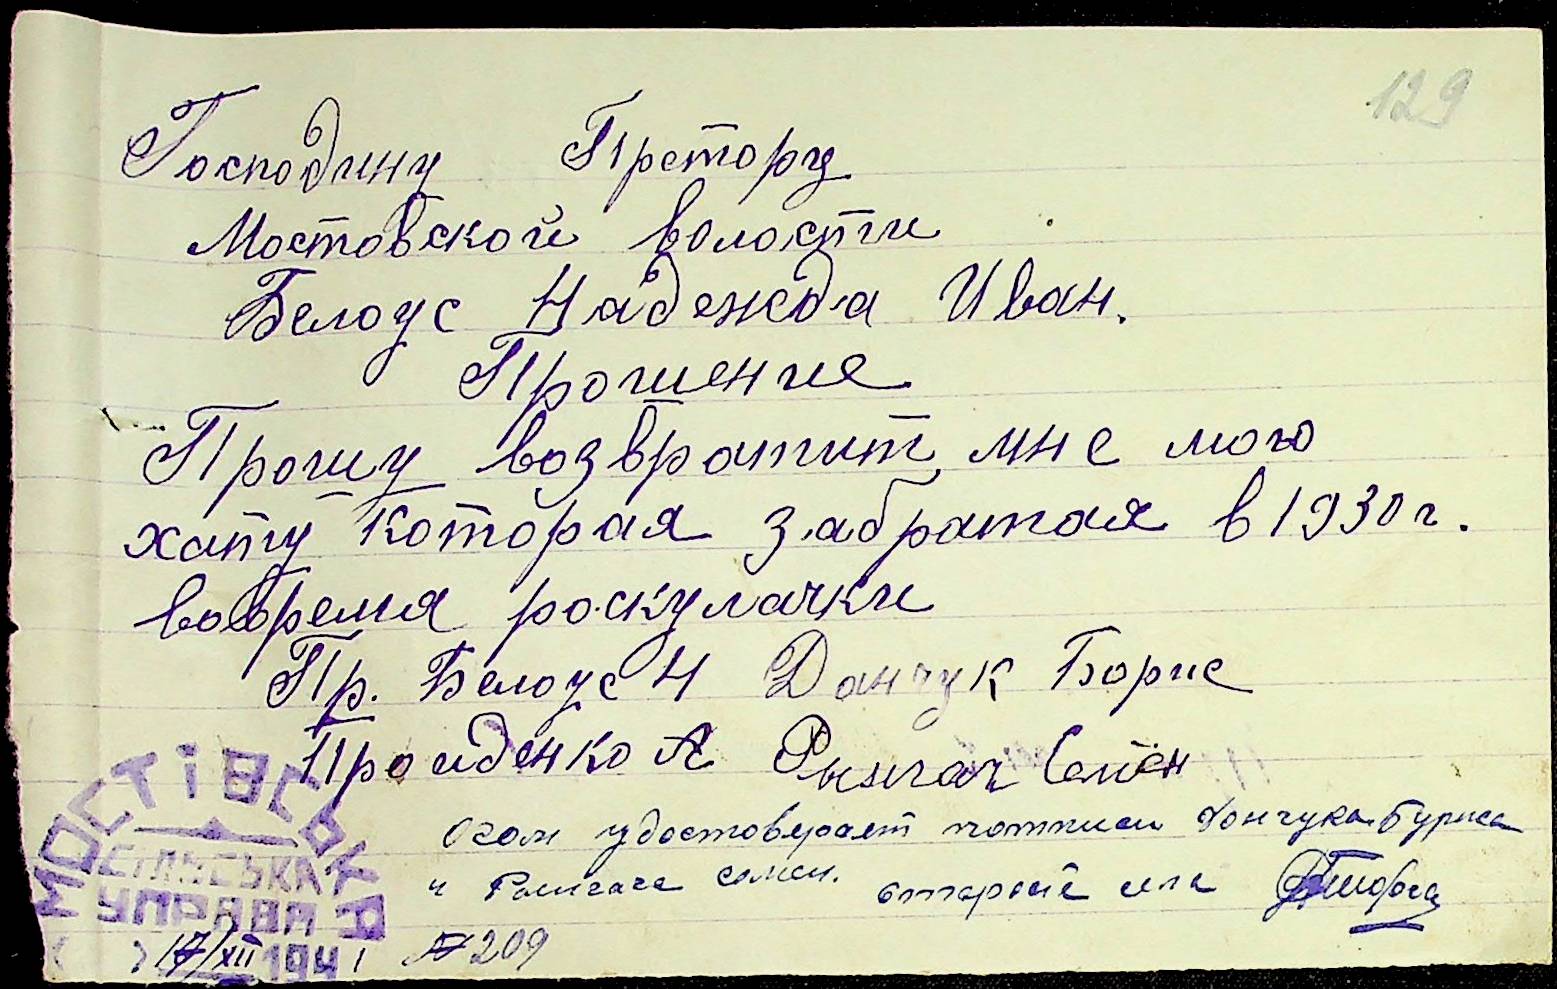 129
Господину Претору
Мостовской волости
Белоус Надежда Иван.
Прошение
Прошу возвратит мне мою
хату которая забратая в 1930 г.
вовремя роскулачки
Пр. Белоус Н Данчук Борис
Проиденко А Рымгач Семён
удостоверяет Дончука Буриса
и Рымгача семен. старости села
МОСТІВСЬКА
СІЛЬСЬКА
УПРАВА
17/XII 1941 № 209